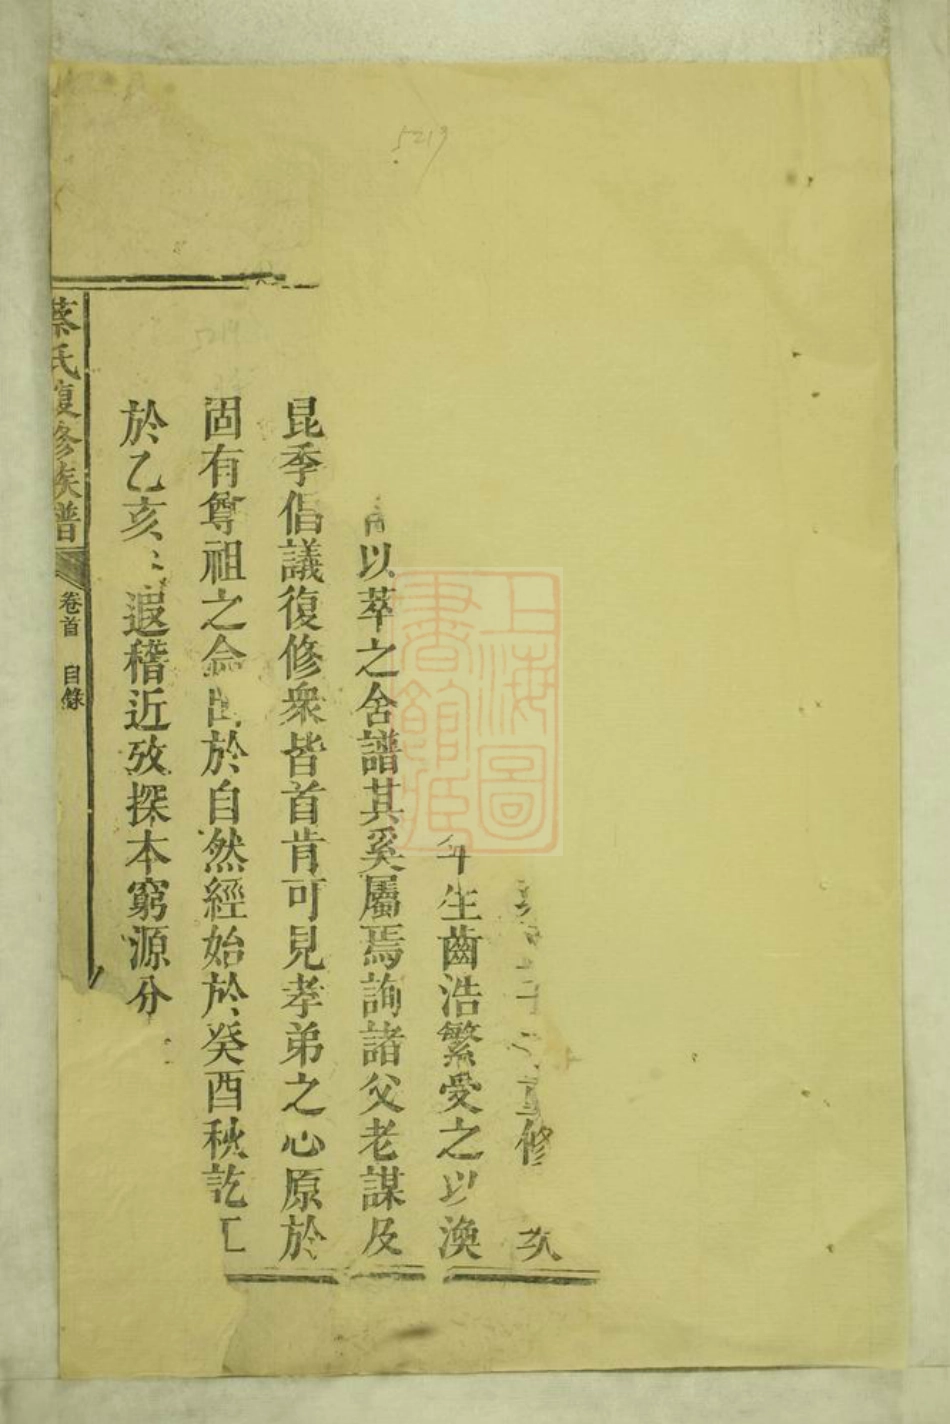 5219
修
年生齒浩繁受之以渙
以萃之舍譜其奚屬焉詢諸父老謀及
昆季倡議復修衆皆首肯可見孝弟之心原於
固有尊祖之念出於自然經始於癸酉秋訖工
於乙亥遐稽近攷探本窮源分
蔡氏復修族譜
卷首 目錄
上海圖書館藏